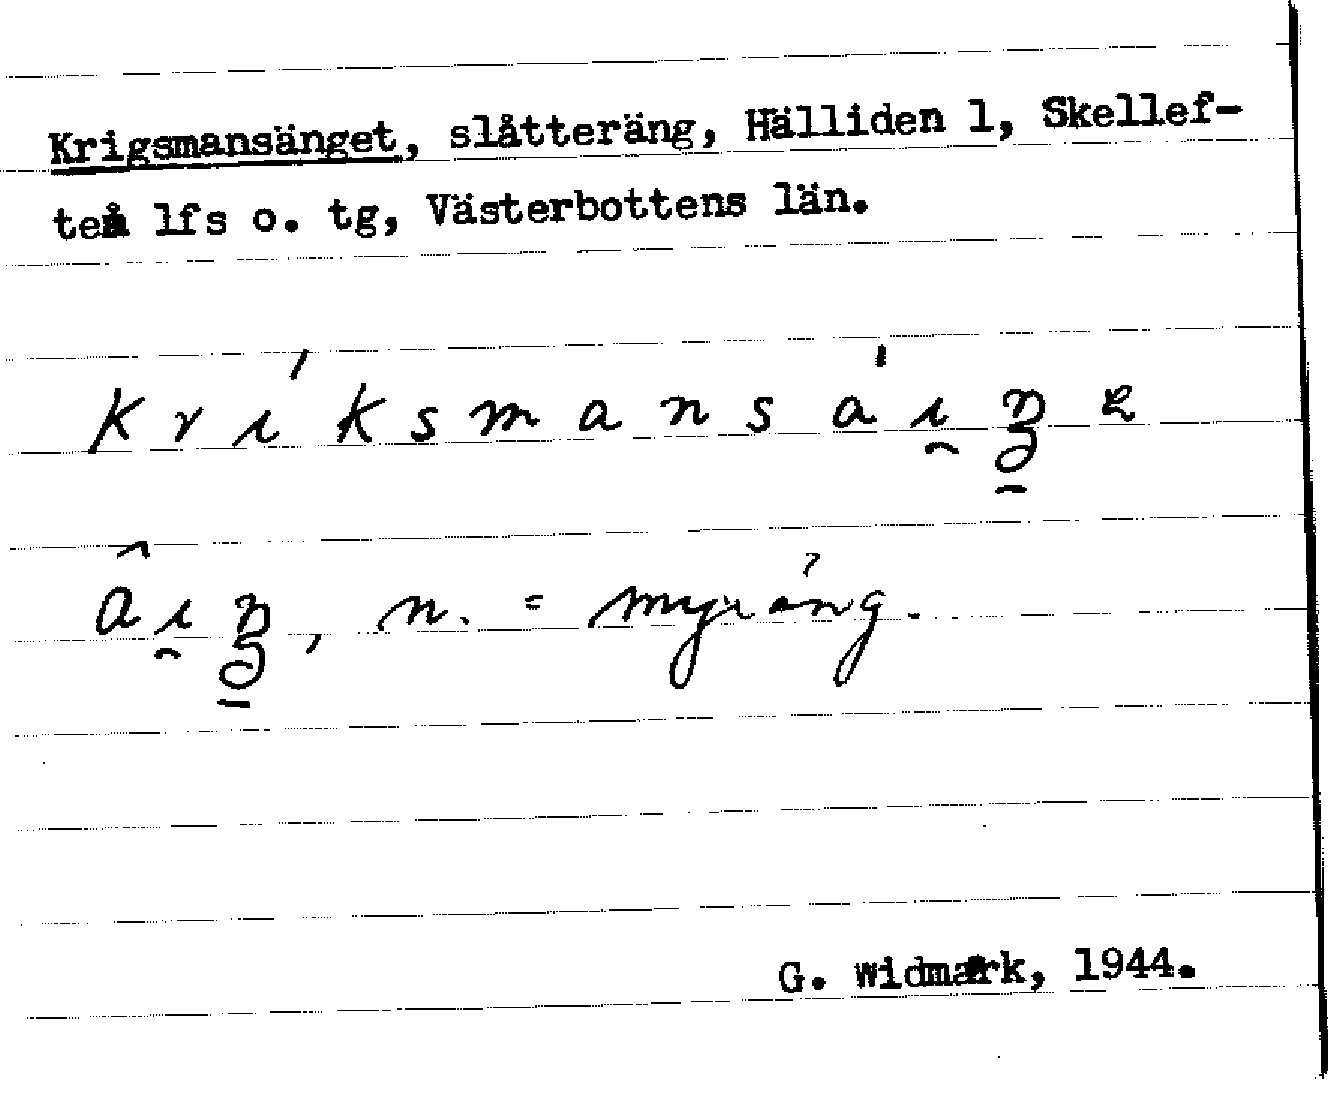 Krigsmansänget, slåtteräng, Hälliden 1, Skellef-
teå lfs o. tg, Västerbottens län.
n. = myräng.
G. Widmark, 1944.